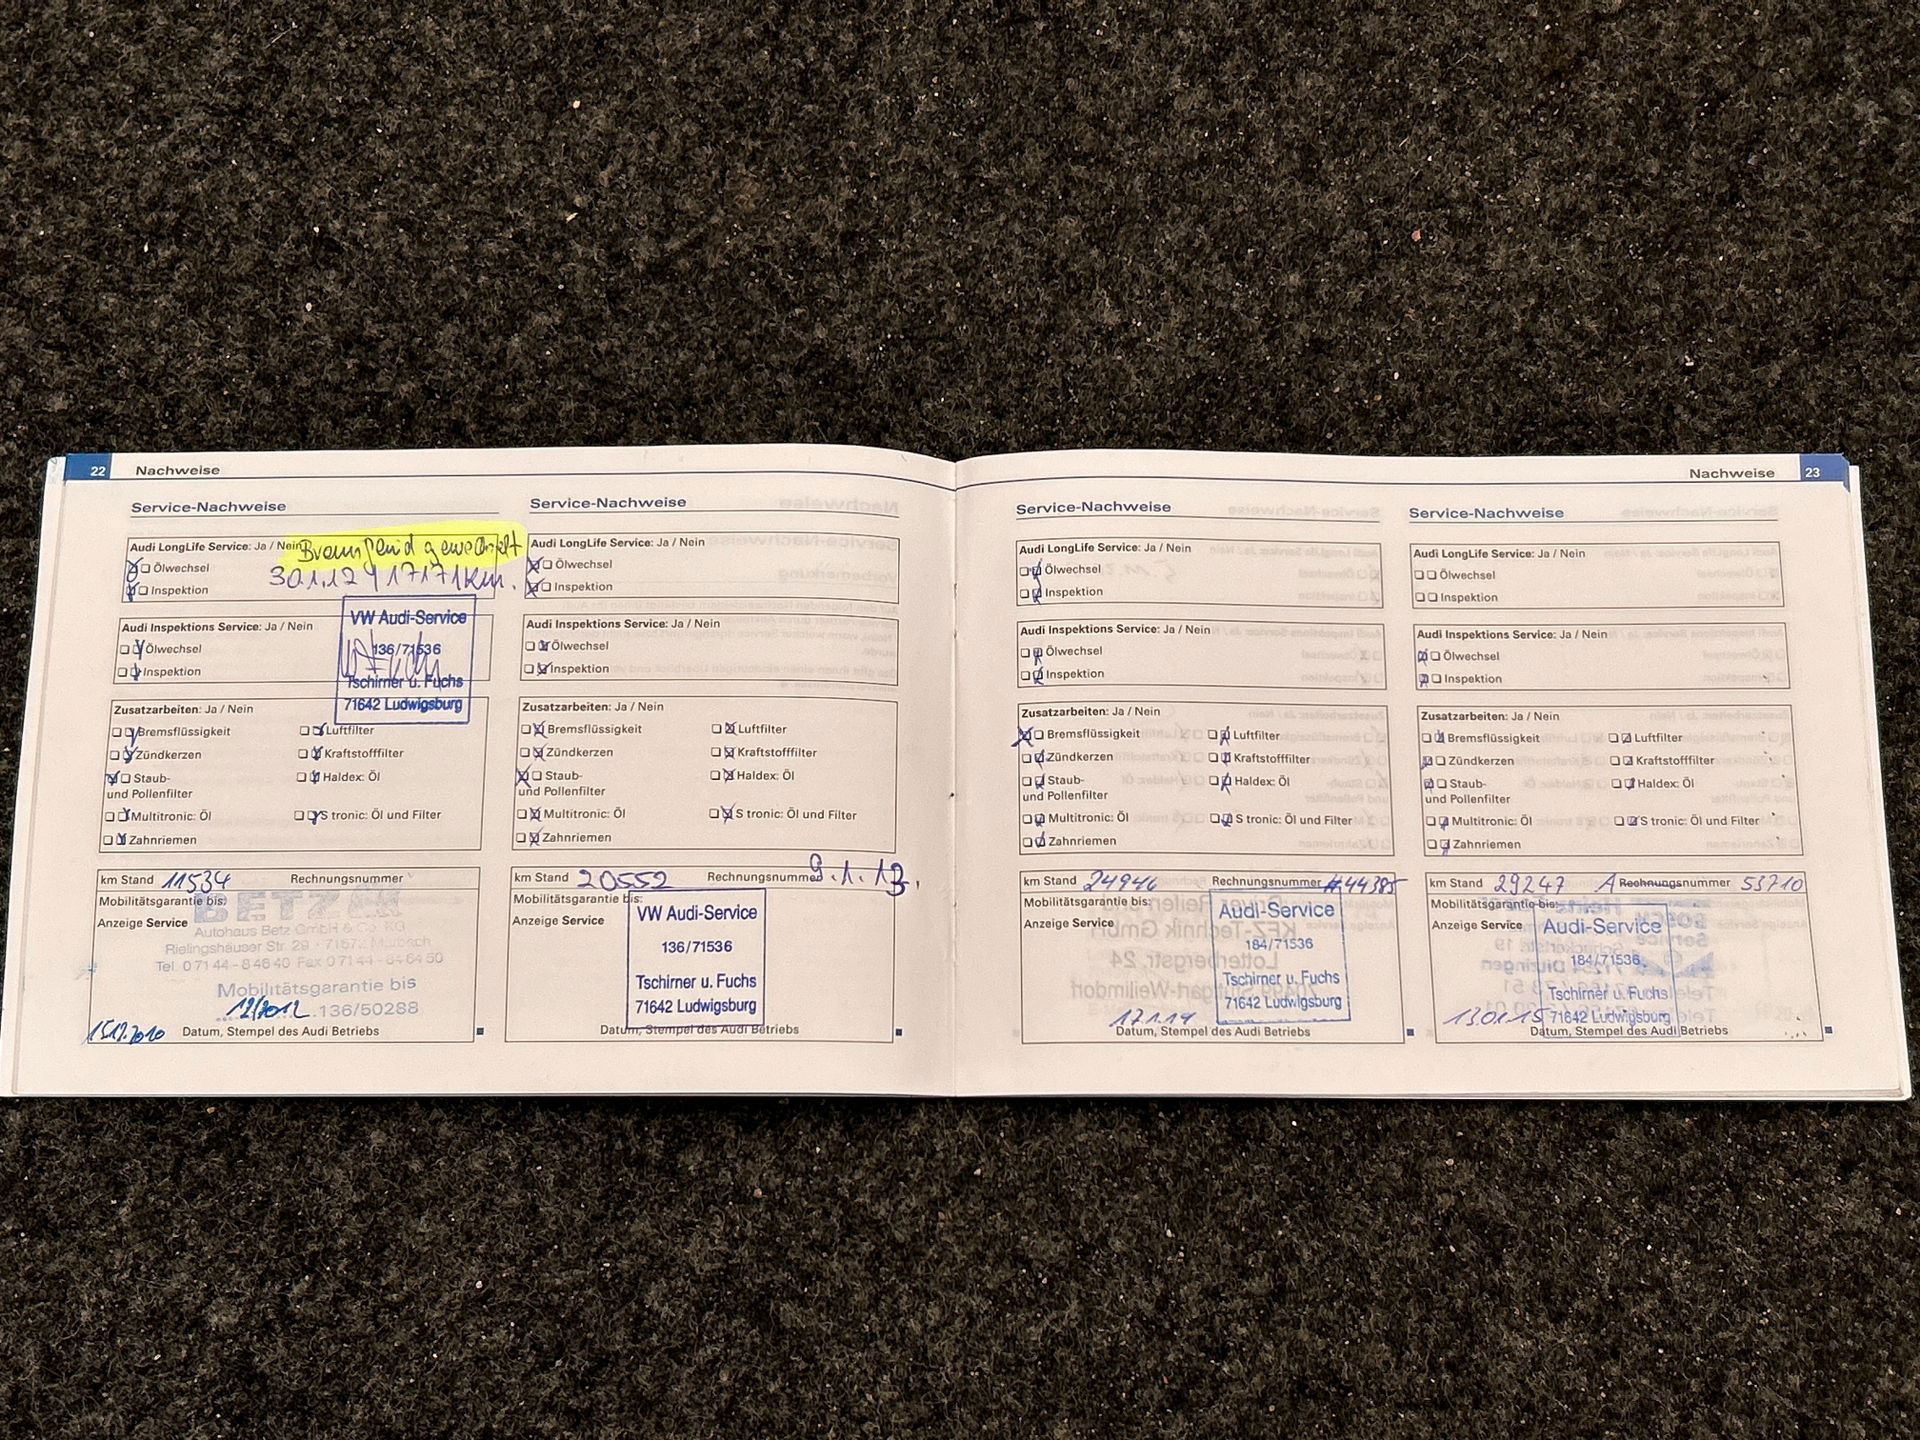 22 Nachweise
Service-Nachweise
Audi LongLife Service: Ja / Nein
Bremsflüssigkeit gewechselt
Ölwechsel
30.1.12 / 17171 Km.
Inspektion
VW Audi-Service
136/71536
Tschirner u. Fuchs
71642 Ludwigsburg
Audi Inspektions Service: Ja / Nein
Ölwechsel
Inspektion
Zusatzarbeiten: Ja / Nein
Bremsflüssigkeit Luftfilter
Zündkerzen Kraftstofffilter
Staub- Haldex: Öl
und Pollenfilter
Multitronic: Öl S tronic: Öl und Filter
Zahnriemen
km Stand 11534 Rechnungsnummer
Mobilitätsgarantie bis:
BETZ
Anzeige Service
Autohaus Betz GmbH & Co. KG
Rielingshäuser Str. 29 · 71672 Marbach
Tel. 0 71 44 - 8 46 40 Fax 0 71 44 - 84 64 50
Mobilitätsgarantie bis
12/2012 136/50288
15.12.2010 Datum, Stempel des Audi Betriebs
Service-Nachweise
Audi LongLife Service: Ja / Nein
Ölwechsel
Inspektion
Audi Inspektions Service: Ja / Nein
Ölwechsel
Inspektion
Zusatzarbeiten: Ja / Nein
Bremsflüssigkeit Luftfilter
Zündkerzen Kraftstofffilter
Staub- Haldex: Öl
und Pollenfilter
Multitronic: Öl S tronic: Öl und Filter
Zahnriemen
km Stand 20552 Rechnungsnummer 9.1.13.
Mobilitätsgarantie bis:
Anzeige Service
VW Audi-Service
136/71536
Tschirner u. Fuchs
71642 Ludwigsburg
Datum, Stempel des Audi Betriebs
Nachweise 23
Service-Nachweise
Audi LongLife Service: Ja / Nein
Ölwechsel
Inspektion
Audi Inspektions Service: Ja / Nein
Ölwechsel
Inspektion
Zusatzarbeiten: Ja / Nein
Bremsflüssigkeit Luftfilter
Zündkerzen Kraftstofffilter
Staub- Haldex: Öl
und Pollenfilter
Multitronic: Öl S tronic: Öl und Filter
Zahnriemen
km Stand 24946 Rechnungsnummer 44385
Mobilitätsgarantie bis:
Anzeige Service
Audi-Service
184/71536
Tschirner u. Fuchs
71642 Ludwigsburg
17.1.14
Datum, Stempel des Audi Betriebs
Service-Nachweise
Audi LongLife Service: Ja / Nein
Ölwechsel
Inspektion
Audi Inspektions Service: Ja / Nein
Ölwechsel
Inspektion
Zusatzarbeiten: Ja / Nein
Bremsflüssigkeit Luftfilter
Zündkerzen Kraftstofffilter
Staub- Haldex: Öl
und Pollenfilter
Multitronic: Öl S tronic: Öl und Filter
Zahnriemen
km Stand 29247 A Rechnungsnummer 53710
Mobilitätsgarantie bis:
Anzeige Service
Audi-Service
184/71536
Tschirner u. Fuchs
13.01.15 71642 Ludwigsburg
Datum, Stempel des Audi Betriebs